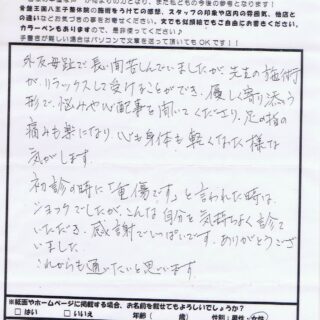 王国八王子整体院の施術をうけての感想、スタッフの対応や店内の雰囲気、他店と
の違いなどお気づきの事をお書きください。文でも似顔絵でもご自由にお書きください。
カラーペンもありますので、是非使ってください♪
手書きが難しい場合はパソコンで文章を送って頂いてもOKです！！
外反母趾で長い間苦しんでいましたが、先生の施術
がリラックスして受けることができ、優しく寄り添う
形で、悩みや心配事を聞いてくださり、足の指の
痛みも楽になり、心も身体も軽くなった様な
気がします。
初診の時に「重傷です」と言われた時は、
ショックでしたが、こんな自分を気持ちよく診て
いただき、感謝でいっぱいです。ありがとうござ
いました。
これからも通いたいと思います。
※紙面やホームページに掲載する場合、お名前を載せてもよろしいでしょうか？
□はい □いいえ 年齢（ 歳） 性別：男性・女性